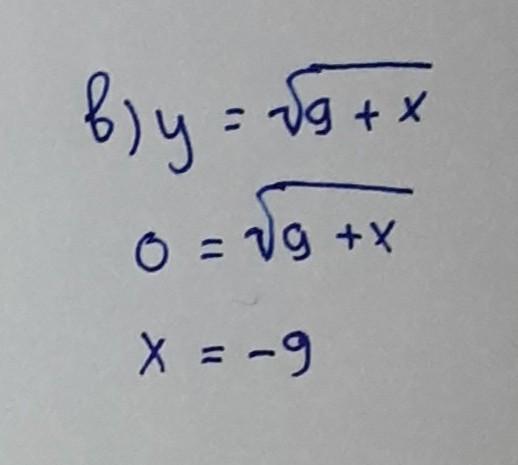 в) y = √9 + x
0 = √9 + x
x = -9